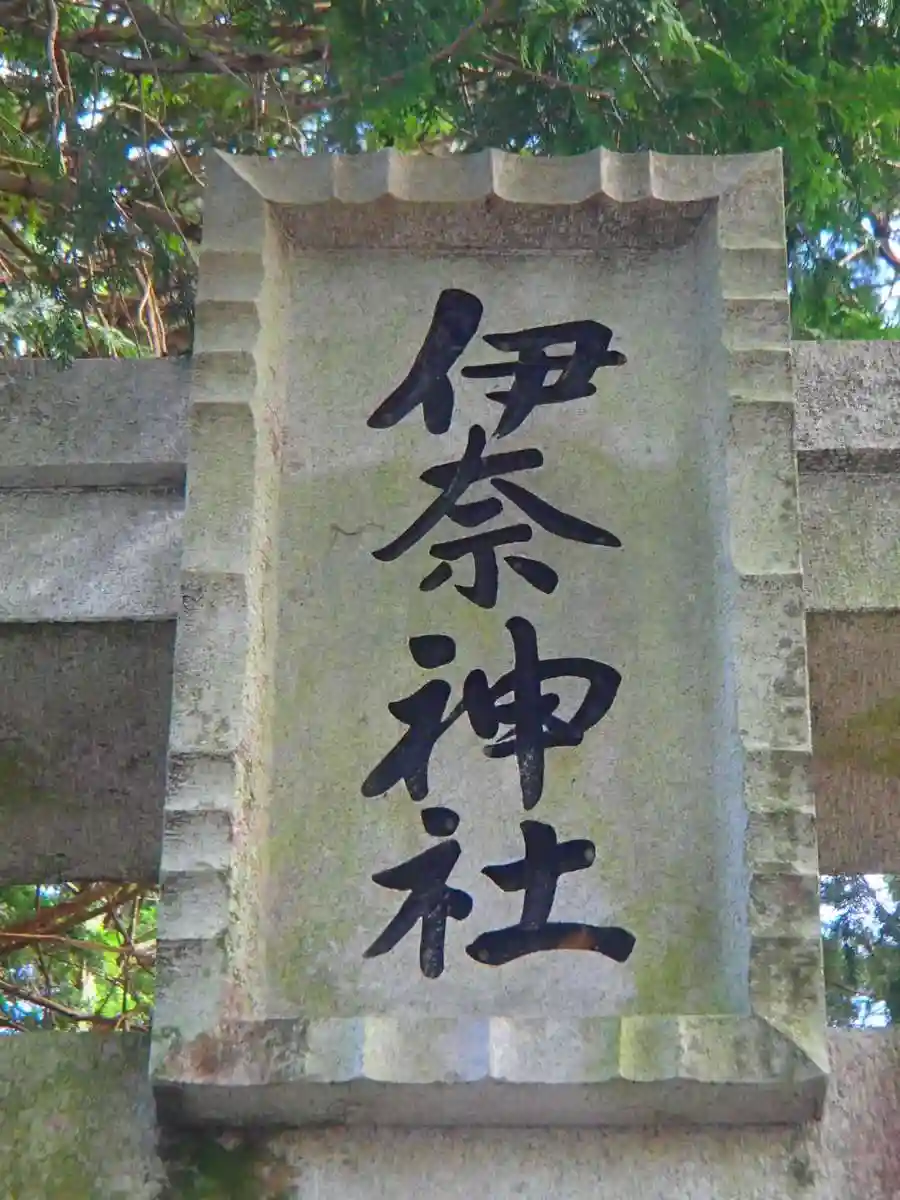 伊奈神社